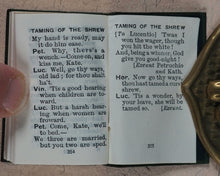 TAMING OF THE SHREW
My hand is ready, may
it do him ease.
Pet. Why, there's a
wench.—Come on, and
kiss me, Kate.
Luc. Well, go thy ways,
old lad; for thou shalt
ha't.
Vin. 'Tis a good hearing
when children are to-
ward.
Luc. But a harsh hear-
ing when women are
froward.
Pet. Come, Kate, we'll
to bed.—
We three are married,
but you two are sped.
TAMING OF THE SHREW
[To Lucentio] 'Twas I
won the wager, though
you hit the white!
And, being a winner, God
give you good-night!
[Exeunt Petruchio
and Kath.
Hor. Now, go thy ways;
thou hast tamed a
curst shrew.
Luc. 'Tis a wonder, by
your leave, she will be
tamed so. [Exeunt